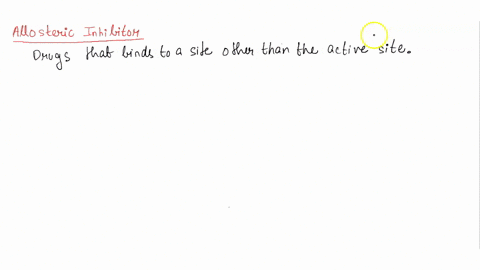 Allosteric Inhibitor
Drugs that binds to a site other than the active site.